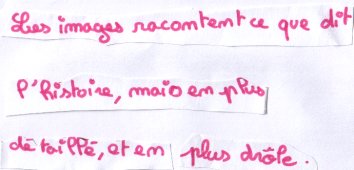 Les images racontent ce que dit
l'histoire, mais en plus
détaillé, et en plus drôle.